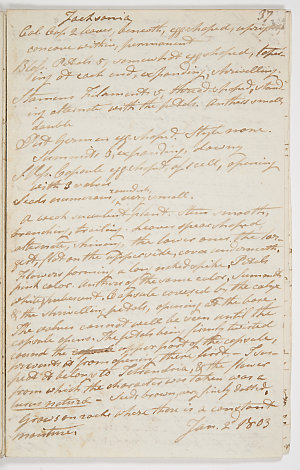 Jacksonia 37
Cal. Cup. 2 leaves, beneath, egg shaped, upright,
concave within, permanent
Blos. Petals 5, somewhat egg shaped, taper
ing at each end, expanding, shrivelling.
Stamens Filaments 5, thread shaped, stand
ing alternate with the petals. Anthers small,
double
Pist. Germen egg shaped. Style none.
Summits 3, expanding, downy
S.V. Capsule egg shaped of 1 cell, opening
with 3 valves
Seeds numerous, roundish, very small.
A weak succulent plant. Stem smooth,
branching, trailing. Leaves spear shaped,
alternate, shining, the lower ones the lar
gest, flat on the upper side, convex beneath.
Flowers forming a long naked spike. Petals
pink color. Anthers of the same color, Summits
white, pubescent, Capsule covered by the calyx
& the shrivelling petals, opening at the base.
The valves cannot well be seen until the
capsule opens. The petals firmly twisted
round the upper part of the capsule,
prevents it from opening there first - I sus
pect it belongs to Tetrandria, & the plants
from which the characters was taken are a
lusus naturæ - Seeds brown, very finely dotted.
Grows on rocks where there is a constant
moisture. Jan. 2 1803